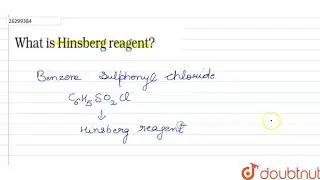 26299384
What is Hinsberg reagent?
Benzene Sulphonyl chloride
C₆H₅SO₂Cl
↓
Hinsberg reagent
doubtnut